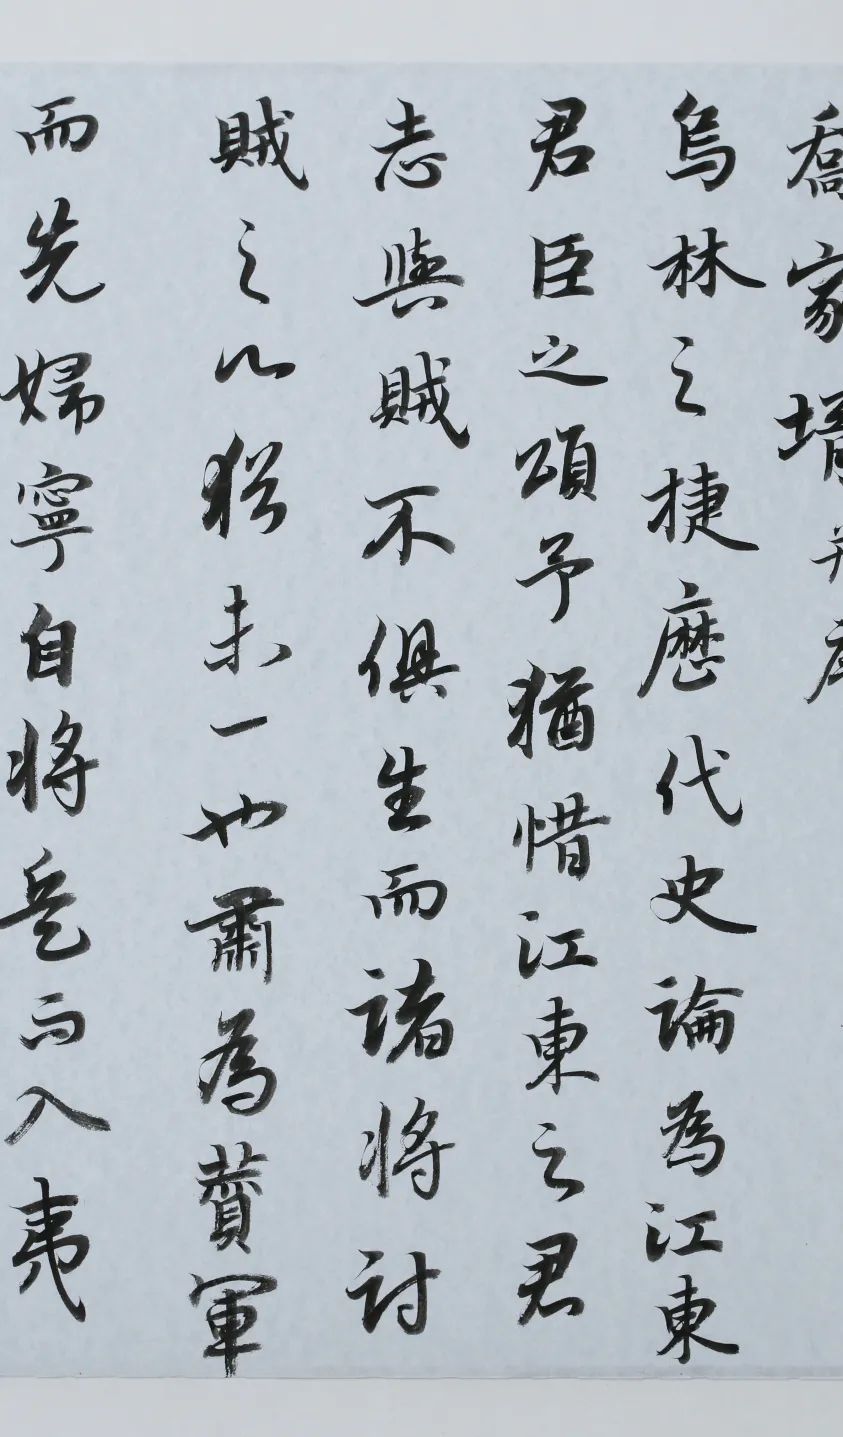 喬家壻并序
烏林之捷歷代史論為江東
君臣之頌予猶惜江東之君
志與賊不俱生而諸將討
賊之心猶未一也肅為贊軍
而先婦寧自將兵而入夷